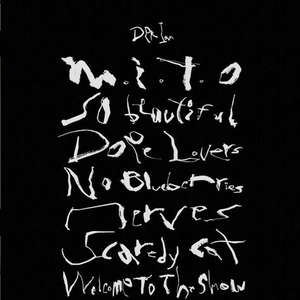 DPR Ian
m.i.t.o
SO beautiful
Dope Lovers
No Blueberries
Nerves
Scaredy Cat
Welcome To The Show